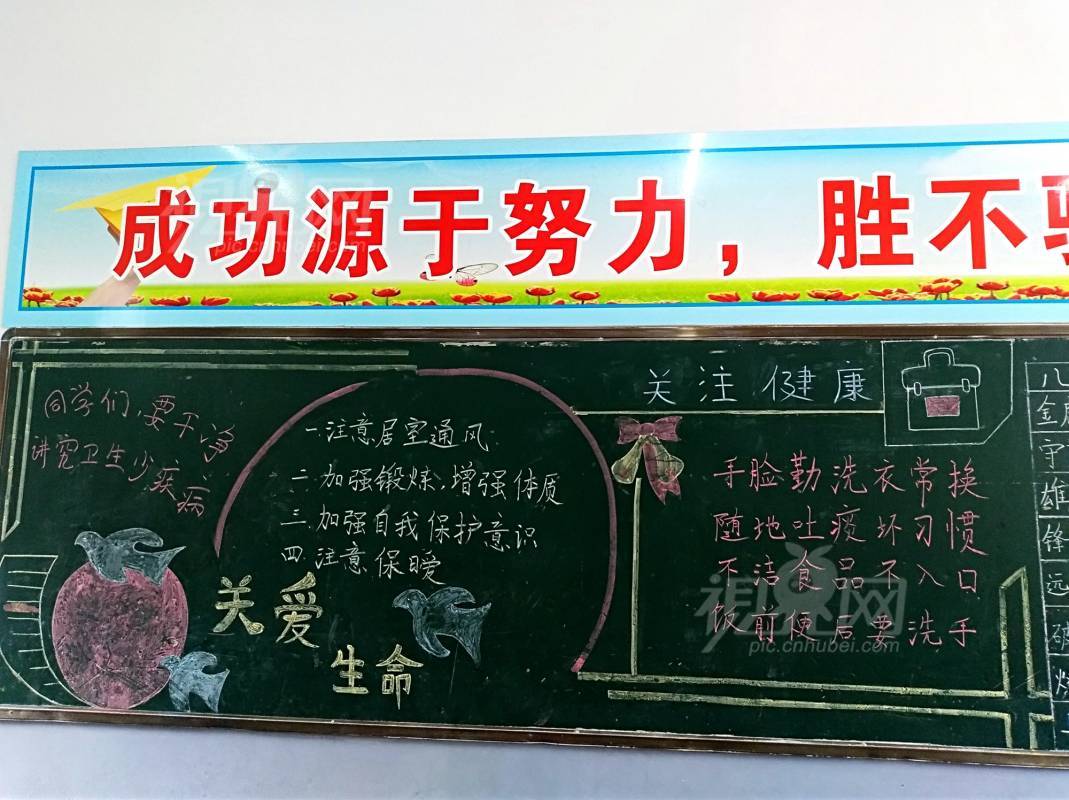 成功源于努力，胜不骄
同学们，要干净
讲究卫生少疾病
一.注意居室通风
二.加强锻炼，增强体质
三.加强自我保护意识
四.注意保暖
关爱
生命
关注健康
手脸勤洗衣常换
随地吐痰坏习惯
不洁食品不入口
饭前便后要洗手
八
金
守
雄
锋
远
破
烧
视界网
pic.cnhubei.com
视界网
pic.cnhubei.com